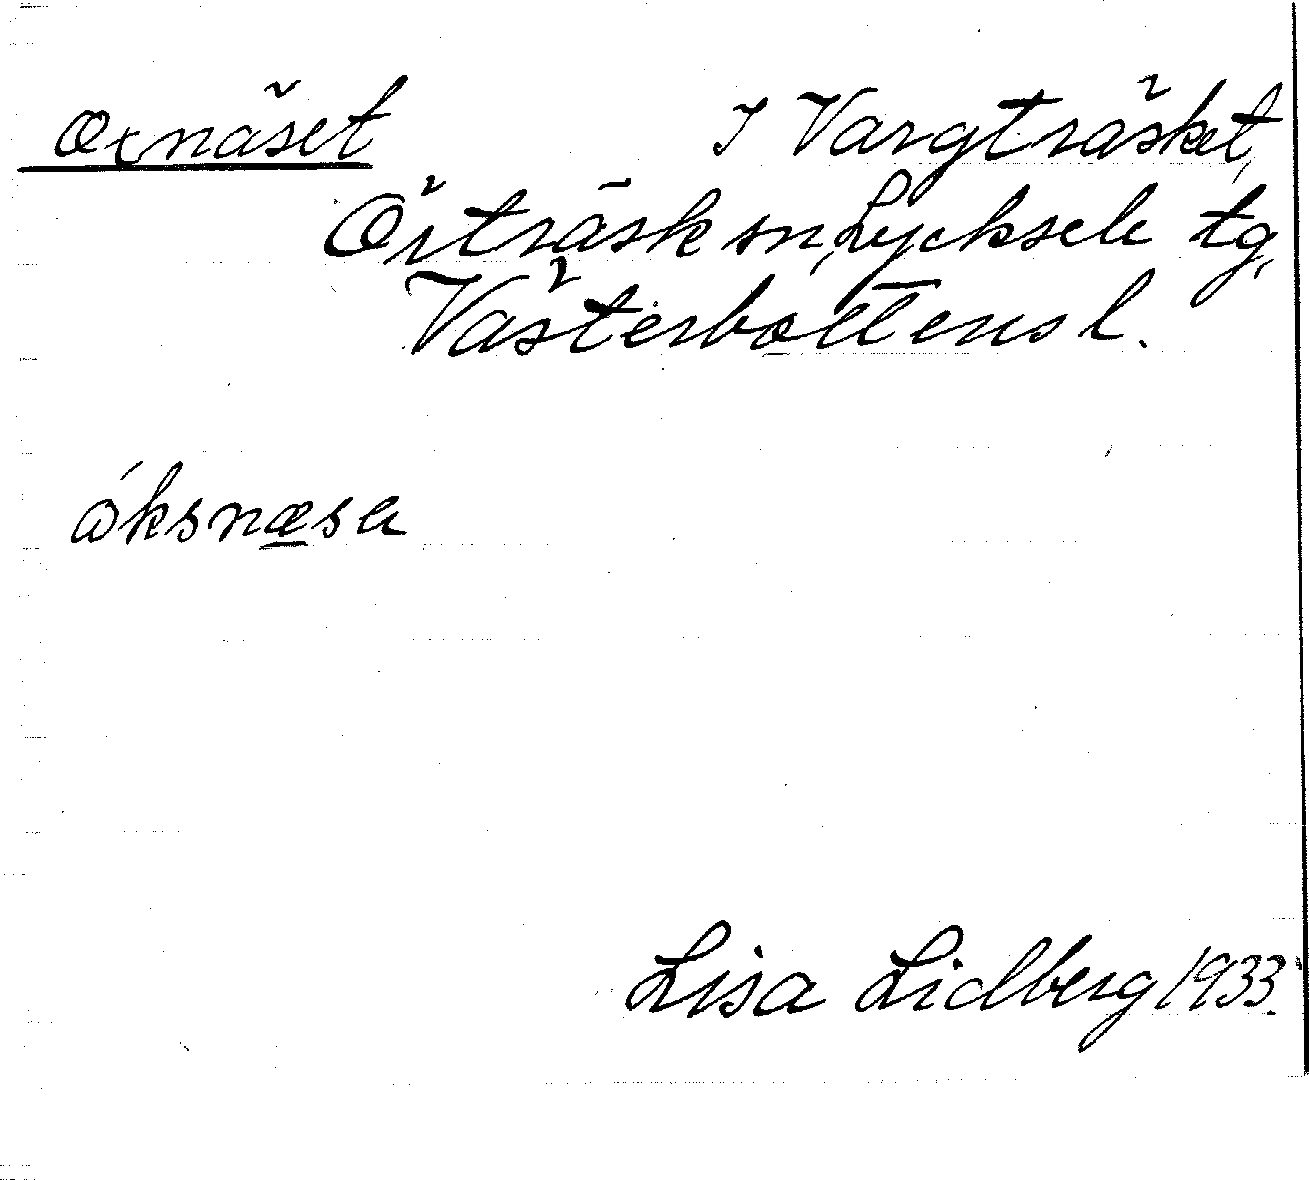 Oxnäset I Vargträsket,
Örträsk sn, Lycksele tg,
Västerbottens l.
óksnæsa
Lisa Lidberg 1933.